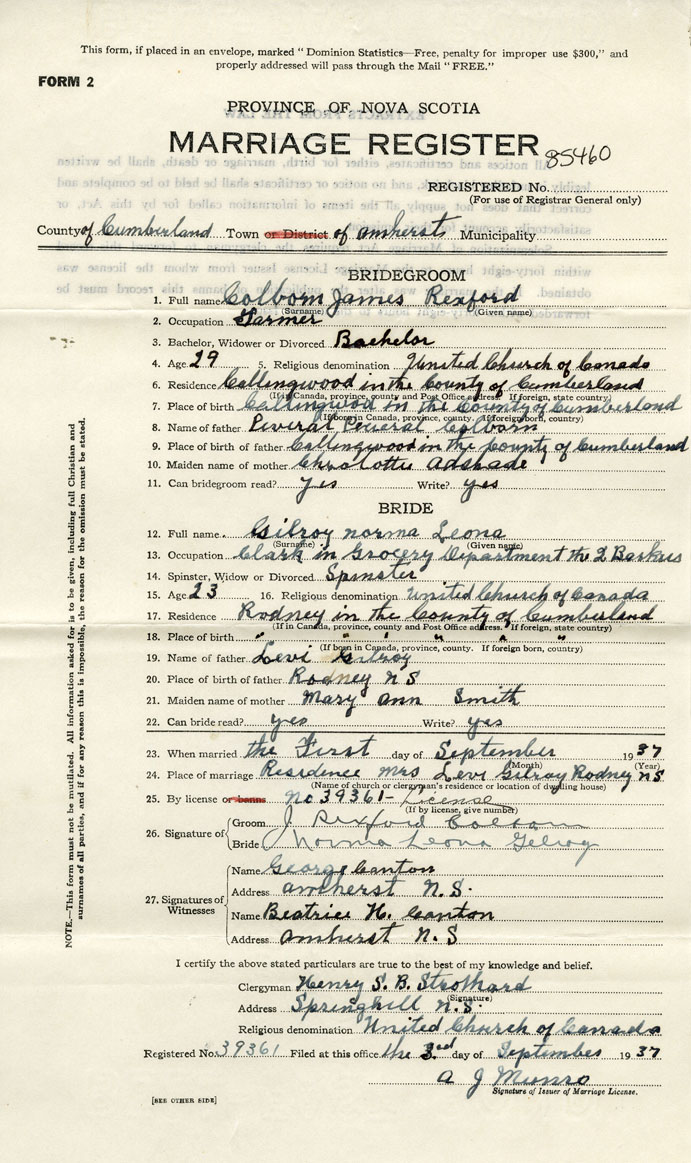 This form, if placed in an envelope, marked " Dominion Statistics—Free, penalty for improper use $300," and
properly addressed will pass through the Mail "FREE."
FORM 2
PROVINCE OF NOVA SCOTIA
MARRIAGE REGISTER 85460
REGISTERED No.
(For use of Registrar General only)
County of Cumberland Town or District of Amherst Municipality
BRIDEGROOM
1. Full name Colborn James Rexford
(Surname) (Given name)
2. Occupation Farmer
3. Bachelor, Widower or Divorced Bachelor
4. Age 29 5. Religious denomination United Church of Canada
6. Residence Collingwood in the County of Cumberland
(If in Canada, province, county and Post Office address. If foreign, state country)
7. Place of birth Collingwood in the County of Cumberland
(If born in Canada, province, county. If foreign born, country)
8. Name of father Colborn
9. Place of birth of father Collingwood in the County of Cumberland
10. Maiden name of mother Charlotte Adshade
11. Can bridegroom read? yes Write? yes
BRIDE
12. Full name Gilroy Norma Leona
(Surname) (Given name)
13. Occupation Clark in Grocery Department the 2 Barkers
14. Spinster, Widow or Divorced Spinster
15. Age 23 16. Religious denomination United Church of Canada
17. Residence Rodney in the County of Cumberland
(If in Canada, province, county and Post Office address. If foreign, state country)
18. Place of birth " " " " " "
(If born in Canada, province, county. If foreign born, country)
19. Name of father Levi Gilroy
20. Place of birth of father Rodney N S
21. Maiden name of mother Mary Ann Smith
22. Can bride read? yes Write? yes
23. When married the First day of September 1937
(Month) (Year)
24. Place of marriage Residence Mrs Levi Gilroy Rodney N S
(Name of church or clergyman's residence or location of dwelling house)
25. By license or banns No 39361- License
(If by license, give number)
26. Signature of
Groom J. Rexford Colborn
Bride Norma Leona Gilroy
27. Signatures of Witnesses
Name George Canton
Address Amherst N.S.
Name Beatrice H. Canton
Address Amherst N.S
I certify the above stated particulars are true to the best of my knowledge and belief.
Clergyman Henry S. B. Strothard
(Signature)
Address Springhill N.S.
Religious denomination United Church of Canada
Registered No. 39361 Filed at this office the 3rd day of September 1937
A J Munro
Signature of Issuer of Marriage License.
[SEE OTHER SIDE]
NOTE.—This form must not be mutilated. All information asked for is to be given, including full Christian and
surnames of all parties, and if for any reason this is impossible, the reason for the omission must be stated.